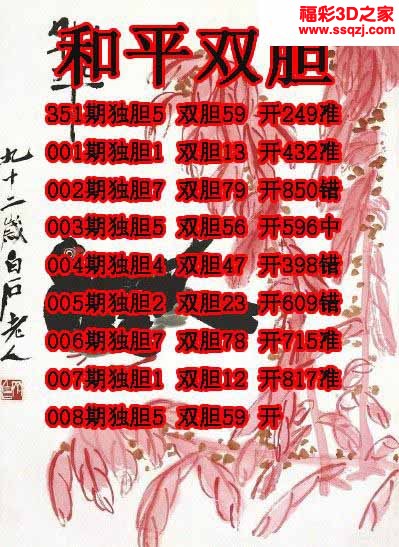 福彩3D之家
www.ssqzj.com
和平双胆
351期独胆5 双胆59 开249准
001期独胆1 双胆13 开432准
002期独胆7 双胆79 开850错
003期独胆5 双胆56 开596中
004期独胆4 双胆47 开398错
005期独胆2 双胆23 开609错
006期独胆7 双胆78 开715准
007期独胆1 双胆12 开817准
008期独胆5 双胆59 开
九十二岁白石老人